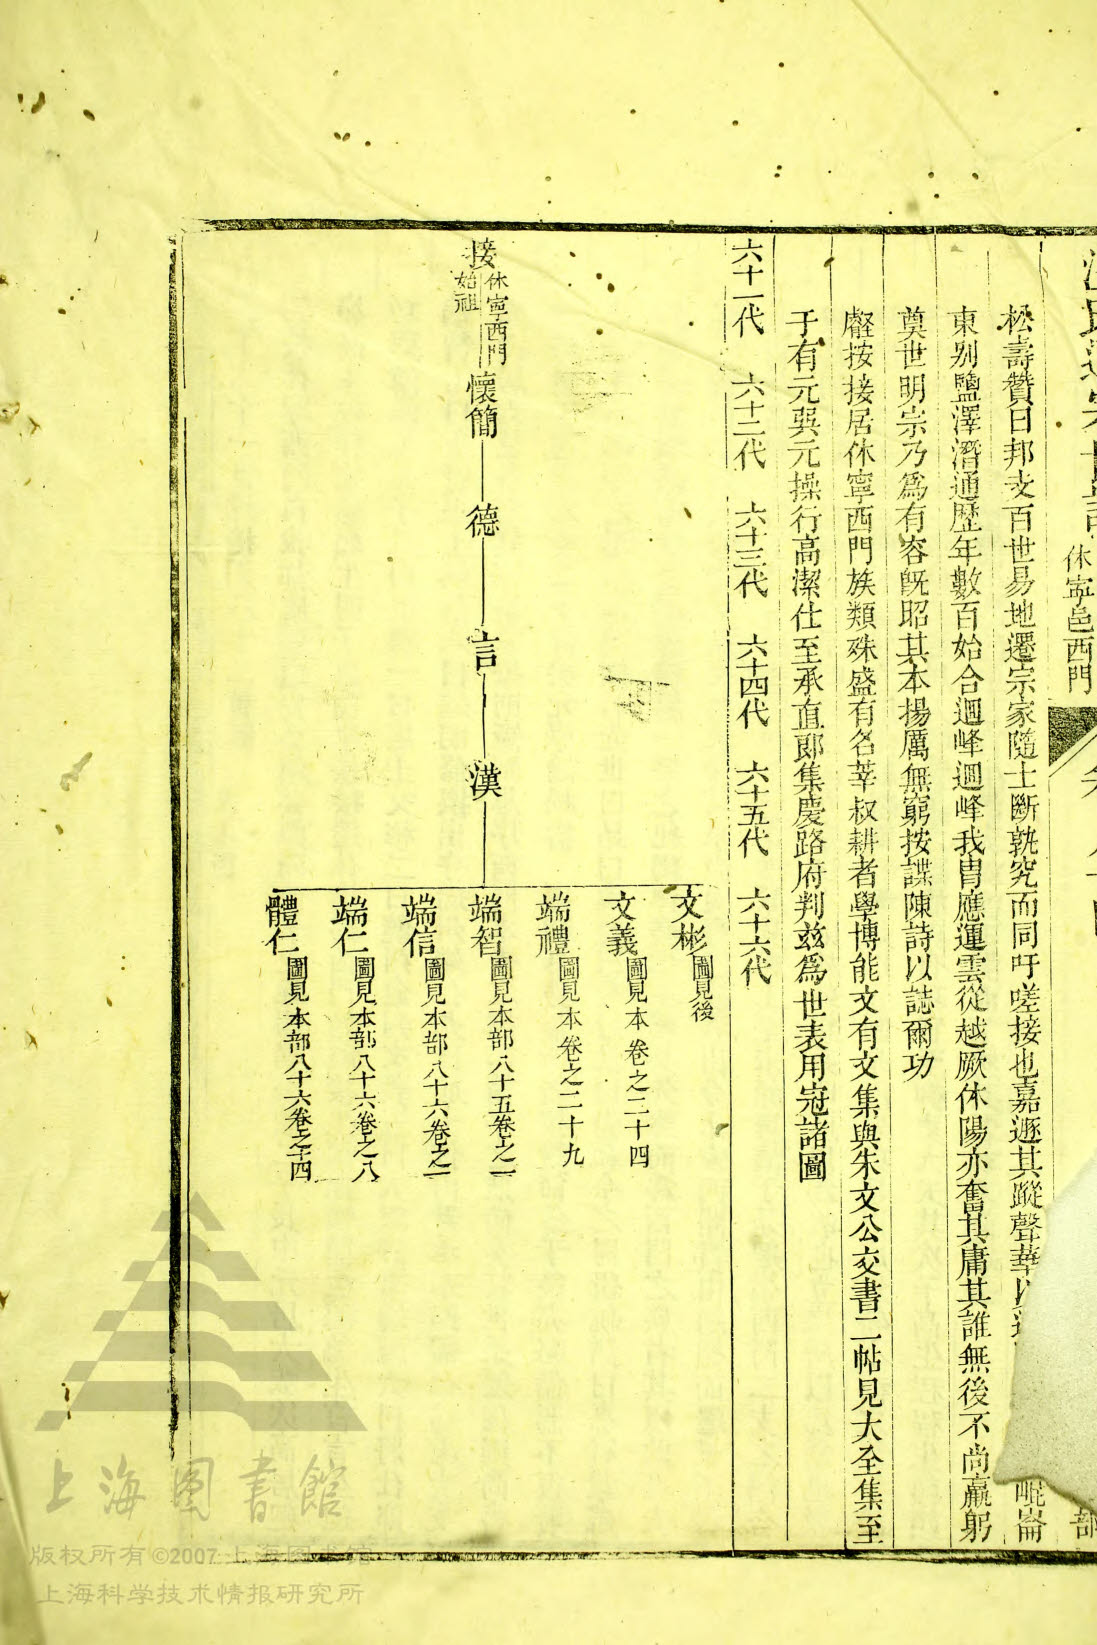 休寧邑西門
松壽贊曰邦支百世易地遷宗家隨士斷孰究而同吁嗟接也嘉遯其蹤聲華以
崐崙
東别鹽澤潛通歷年數百始合迴峰迴峰我胄應運雲從越厥休陽亦奮其庸其誰無後不尚羸躬
奠世明宗乃爲有容旣昭其本揚厲無窮按諜陳詩以誌爾功
廰按接居休寧西門族類殊盛有名莘叔耕者學博能文有文集與朱文公交書二帖見大全集至
于有元巽元操行高潔仕至承直郎集慶路府判兹爲世表用冠諸圖
六十一代 六十二代 六十三代 六十四代 六十五代 六十六代
接 休寧西門始祖 懷簡 德 言 漢
文彬 圖見後
文義 圖見本卷之二十四
端禮 圖見本卷之二十九
端智 圖見本部八十五卷之一
端信 圖見本部八十六卷之一
端仁 圖見本部八十六卷之八
體仁 圖見本部八十六卷之十四
上海图書館
版权所有©2007 上海图书馆
上海科学技术情报研究所